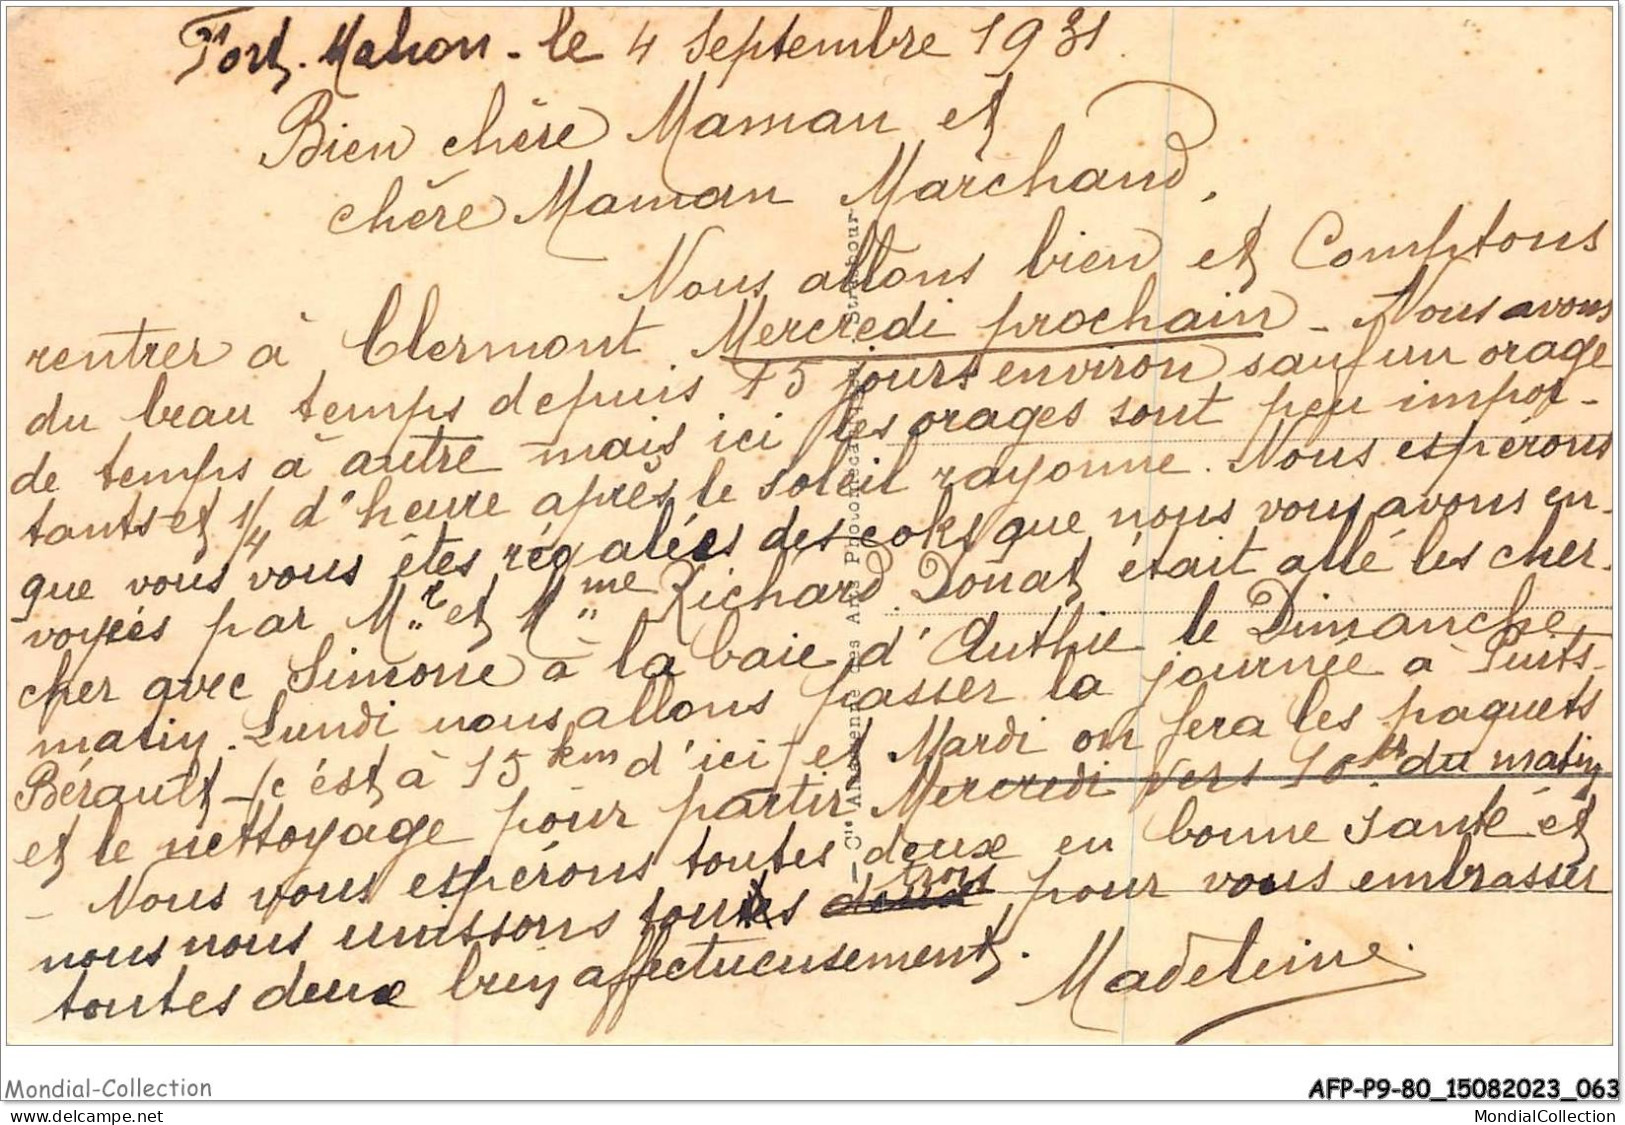 Fort-Mahon - le 4 Septembre 1931
Bien chère Maman et
chère Maman Marchand,
Nous allons bien et Comptons
rentrer à Clermont Mercredi prochain - Nous avons
du beau temps depuis 15 jours environ sauf un orage
de temps à autre mais ici les orages sont peu impor-
tants et 1/4 d'heure après le soleil rayonne. Nous espérons
que vous vous êtes régalées des coks que nous vous avons en-
voyées par Mr et Mme Richard. Donat était allé les cher-
cher avec Simone à la baie d'Authie le Dimanche
matin. Lundi nous allons passer la journée à Puits-
Bérault - (c'est à 15 km d'ici) et Mardi on fera les paquets
et le nettoyage pour partir Mercredi vers 10 hr du matin
- Nous vous espérons toutes deux en bonne santé et
trois
nous nous unissons tous deux pour vous embrasser
toutes deux bien affectueusement.
Madeleine
Cie Alsacienne des Arts Photomécaniques, Strasbourg
Mondial-Collection
AFP-P9-80_15082023_063
www.delcampe.net
MondialCollection